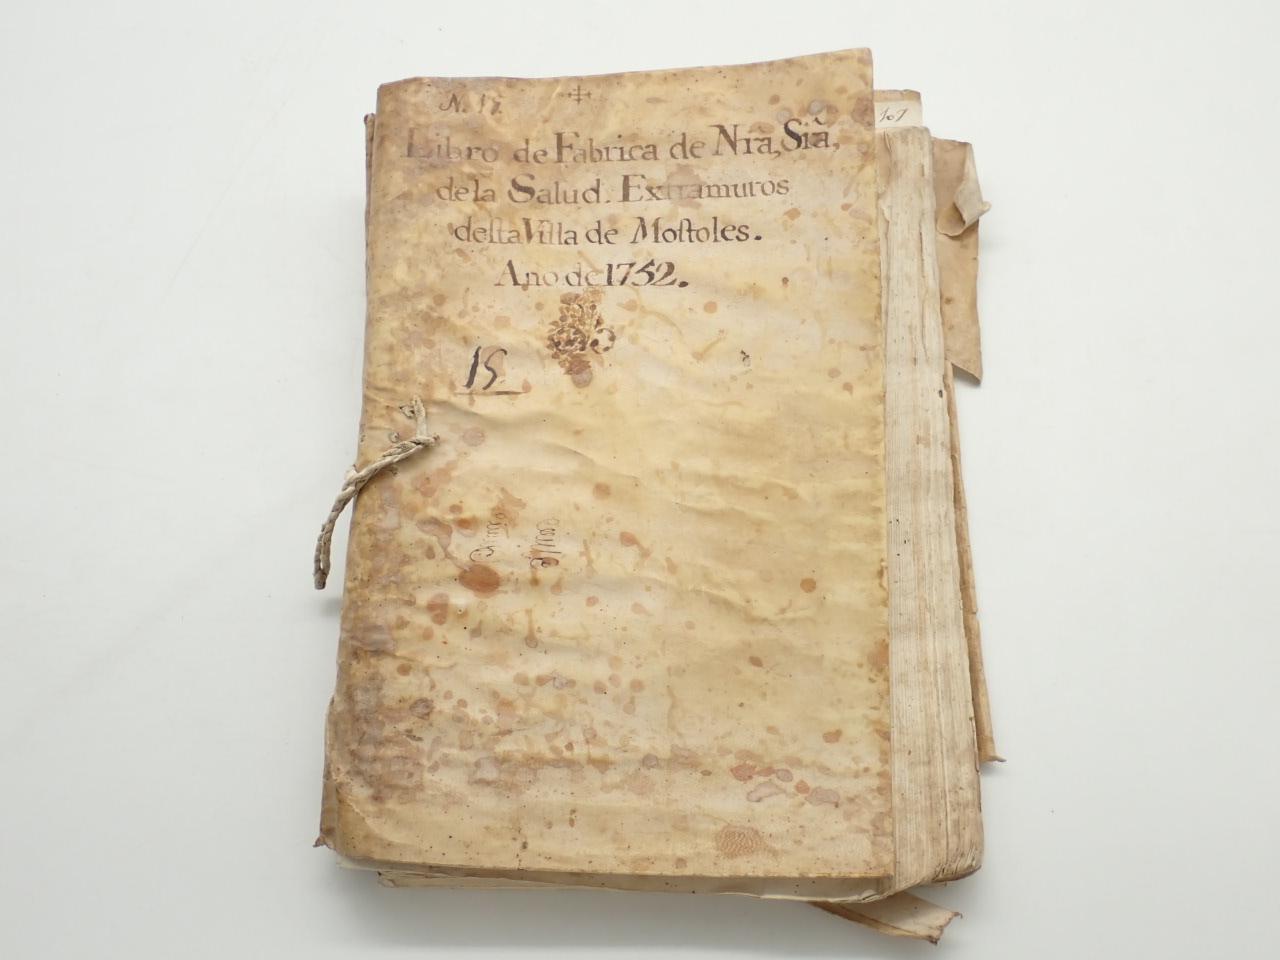 N. 17.
107
Libro de Fabrica de Nrã, Srã,
de la Salud. Extramuros
desta Villa de Mostoles.
Ano de 1752.
15